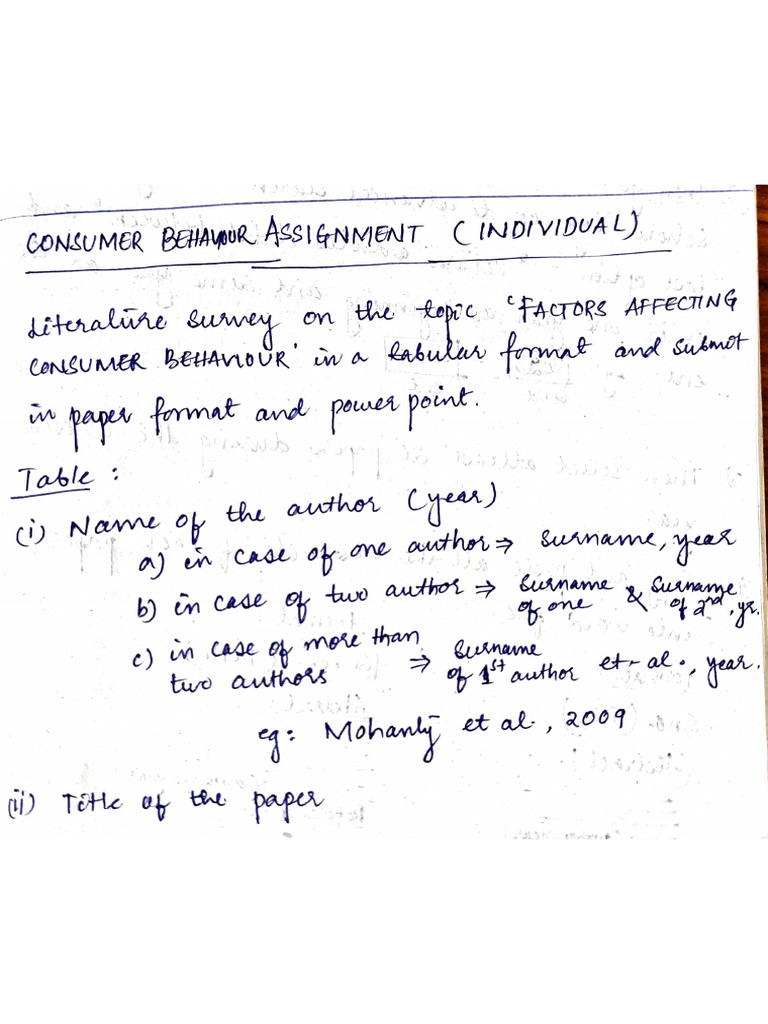 CONSUMER BEHAVIOUR ASSIGNMENT (INDIVIDUAL)
Literature survey on the topic 'FACTORS AFFECTING
CONSUMER BEHAVIOUR' in a tabular format and submit
in paper format and power point.
Table :
(i) Name of the author (year)
a) in case of one author ⇒ surname, year
b) in case of two author ⇒ surname of one & surname of 2nd, yr.
c) in case of more than two authors ⇒ surname of 1st author et-al., year.
eg: Mohanty et al., 2009
(ii) Title of the paper